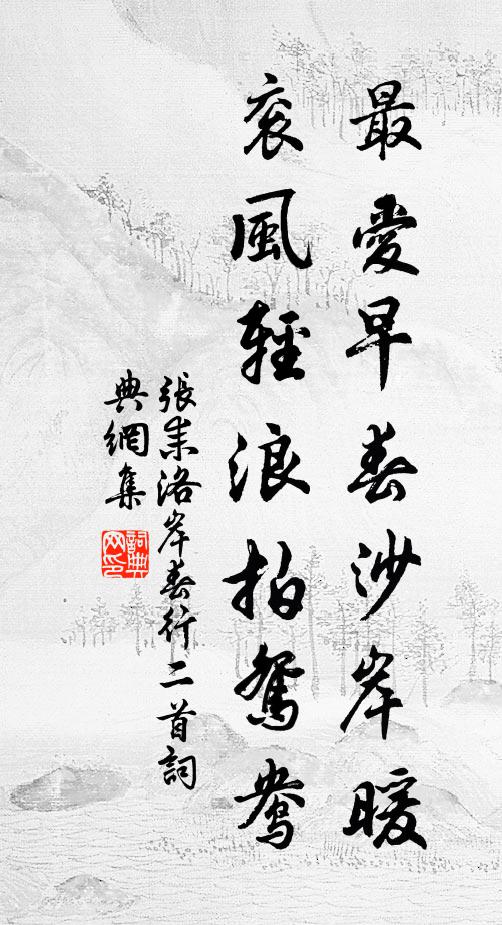 最愛早春沙岸暖
衮風輕浪拍鴛鴦
張耒洛岸春行二首詞
典網集
詞典
网印